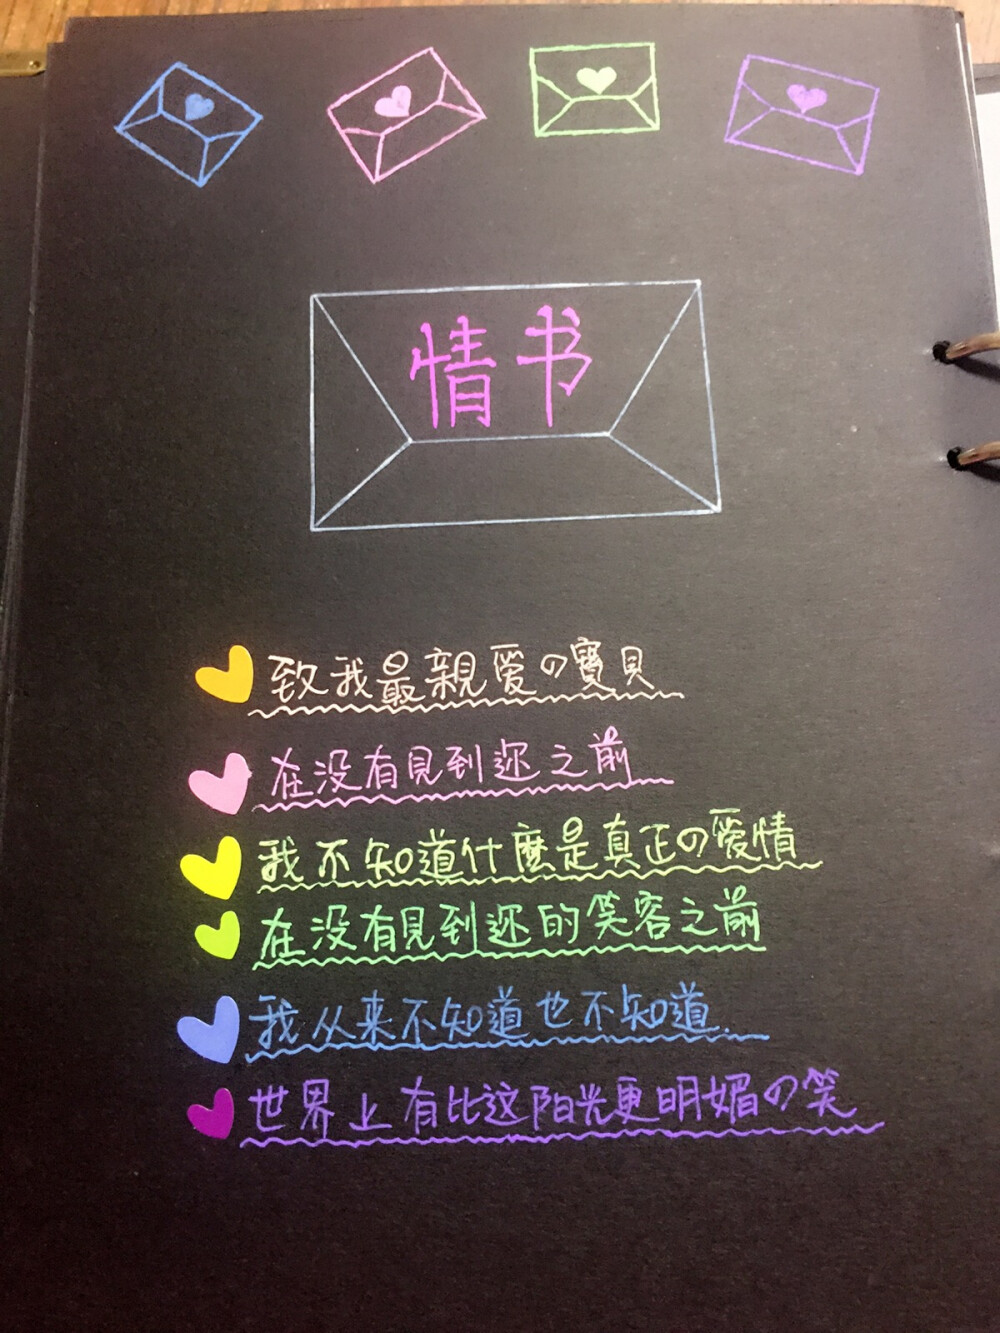 情书
致我最親爱の寶貝
在没有見到迩之前
我不知道什麽是真正の爱情
在没有見到迩的笑容之前
我从来不知道也不知道
世界上有比这阳光更明媚の笑